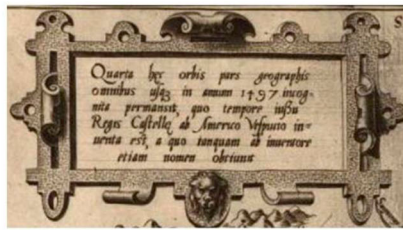 Quarta hęc orbis pars geographis
omnibus usqȝ in annum 1497 incog-
nita permansit, quo tempore iussu
Regis Castellę ab Americo Vespucio in-
uenta est, a quo tanquam ab inuentore
etiam nomen obtinuit
S